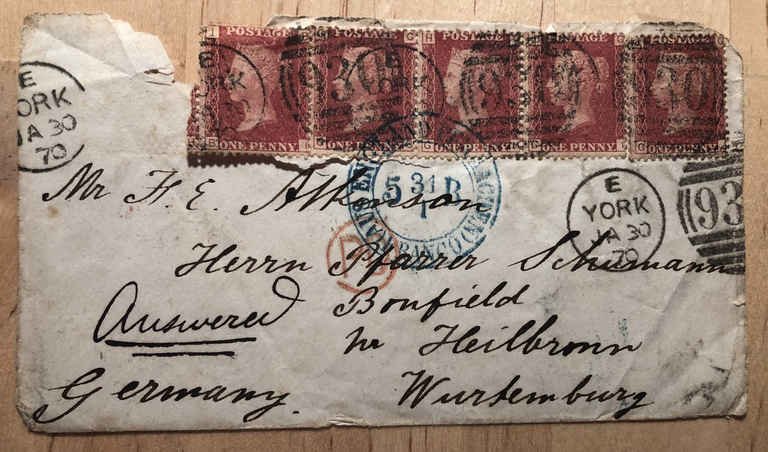 POSTAGE POSTAGE POSTAGE POSTAGE POSTAGE
ONE PENNY ONE PENNY ONE PENNY ONE PENNY ONE PENNY
930 930
E
YORK
JA 30
70
5 31 B
1
E
YORK
JA 30
70
93
Mr F. E. Atkinson
Herrn Pfarrer Schumann
Answered Bonfield
Heilbronn
Germany. Wurtemburg